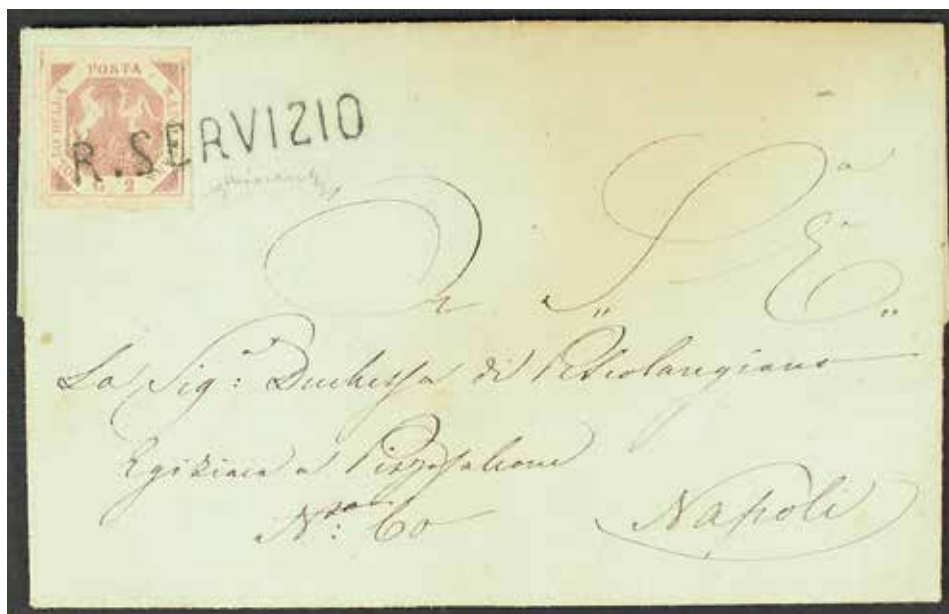 POSTA
G 2
R. SERVIZIO
A S. E.
La Sig.ra Duchessa di Pescolangiano
Egiziaca a Pizzofalcone
N.º 60
Napoli